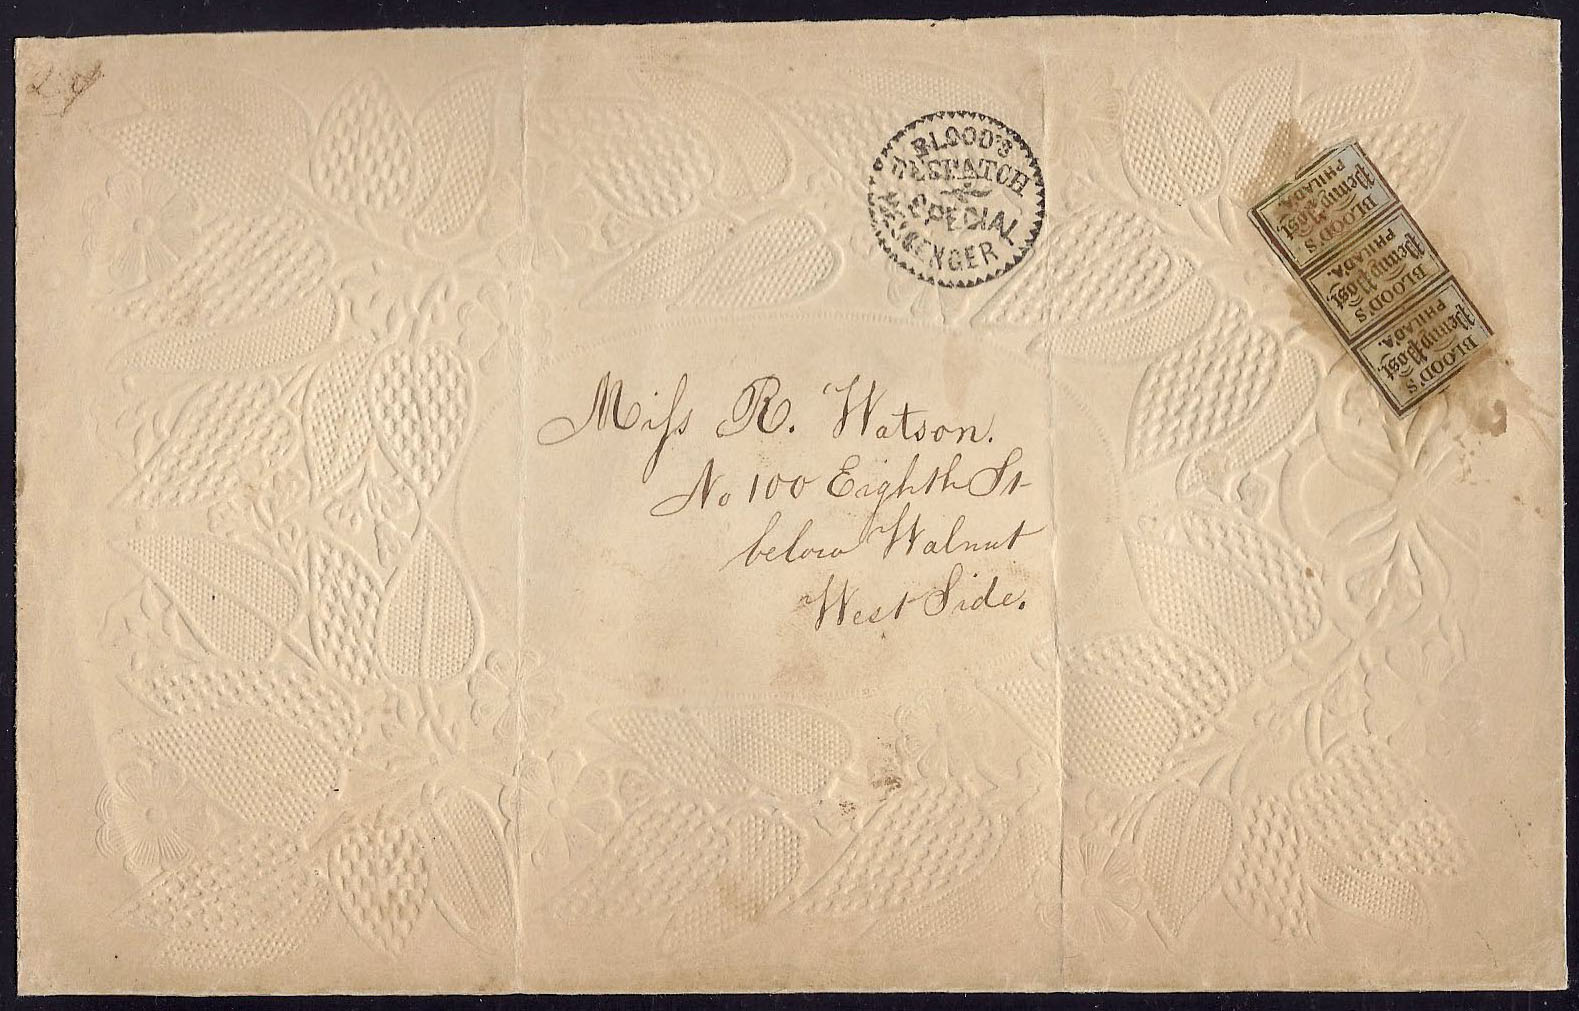 BLOOD'S
DESPATCH
SPECIAL
MESSENGER
BLOOD'S
Penny Post,
PHILAD'A.
BLOOD'S
Penny Post,
PHILAD'A.
BLOOD'S
Penny Post,
PHILAD'A.
Miſs R. Watson.
No 100 Eighth St
below Walnut
West Side.